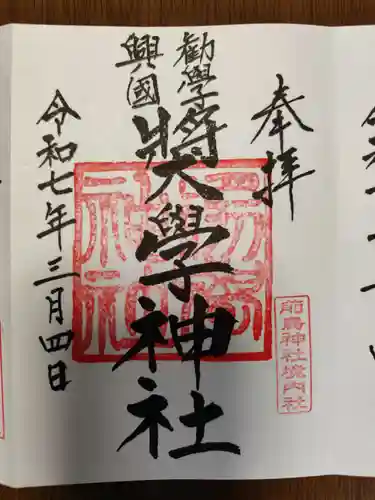 奉拝
勸學
興國
奬學神社
前鳥神社境内社
令和七年三月四日